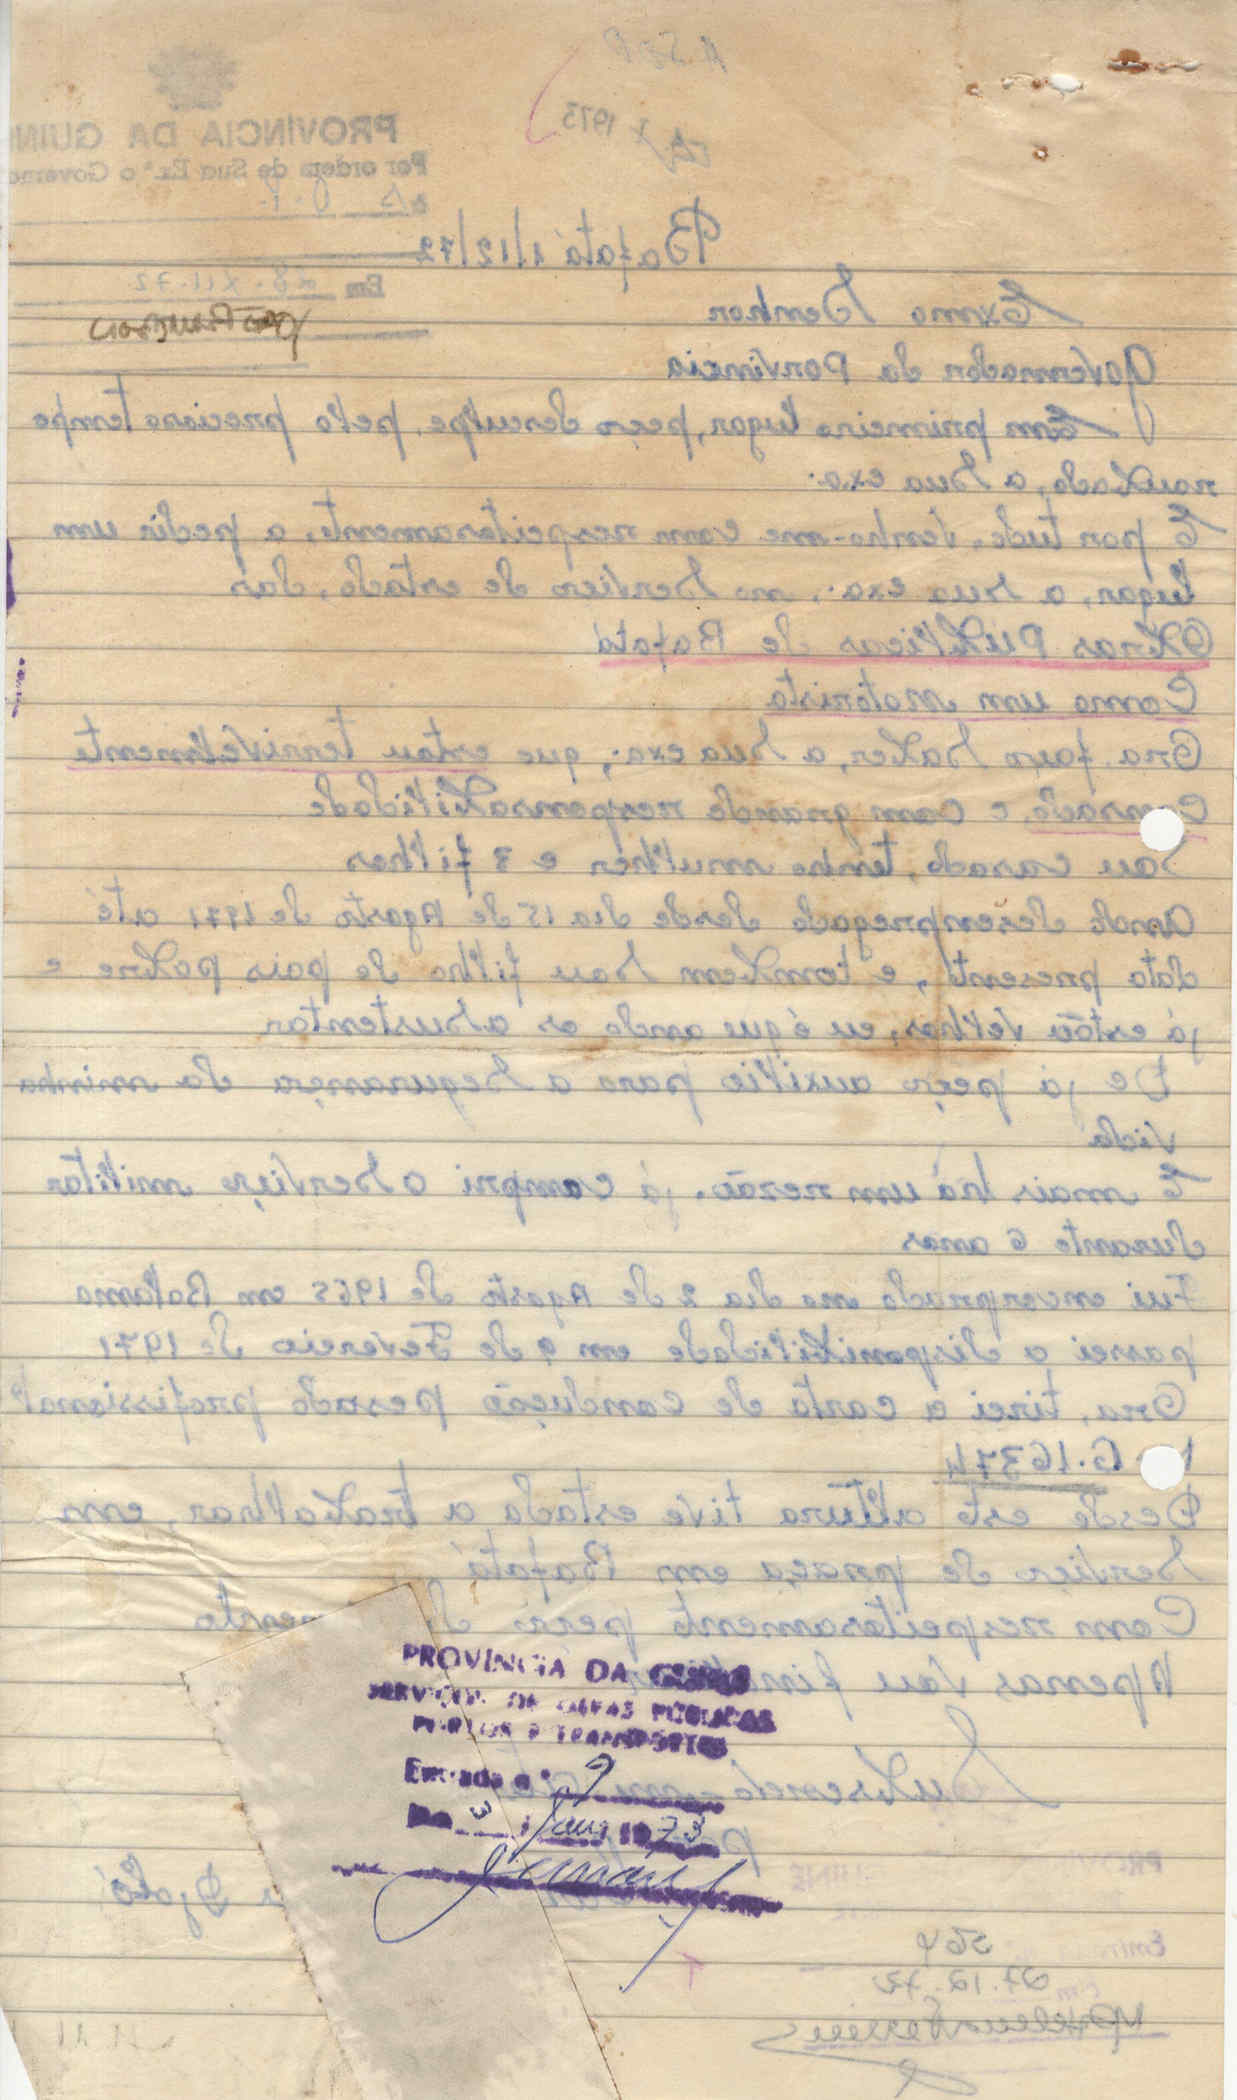 A SOP
1973
PROVÍNCIA DA GUIN
Por ordem de Sua Ex.ª o Governa
Bafatá 1/12/72
Em 28.XII.72
Exmo Senhor
Governador da Porvincia
Em primeiro lugar, peço desculpe, pelo precioso tempo
roubado, a sua exa.
E por tudo, venho-me com respeitosamente, a pedir um
lugar, a sua exa., no serviço de estado, das
Obras Publicas de Bafatá
Como um motorista
Ora faço saber, a sua exa; que estou terrivelmente
e com grande responsabilidade
Sou casado, tenho mulher e 3 filhos
Ando desempregado desde dia 15 de Agosto de 1971 até
data presente, e tombem sou filho de pais pobre e
já estão velhos, eu é que ando os asustentar
De já peço auxilio para a segurança da minha
vida
E mais há um rezão. já compri o serviço militar
durante 6 anos
Fui encorprado no dia 2 de Agosto de 1965 em Bolama
passei a disponibilidade em 9 de Fevereiro de 1971
Ora, tirei a carta de condução pesado profissional
G.16374
Desde esta altura tive estado a trabalhar, em
serviço de praça em Bafatá
Com respeitosamente peço
Apenas vou
PROVÍNCIA DA GUINÉ
SERVIÇOS DE OBRAS PÚBLICAS
PORTOS E TRANSPORTES
Entrada n.º 9
Em 3 / Jan / 1973
GUINÉ
564
27.12.72